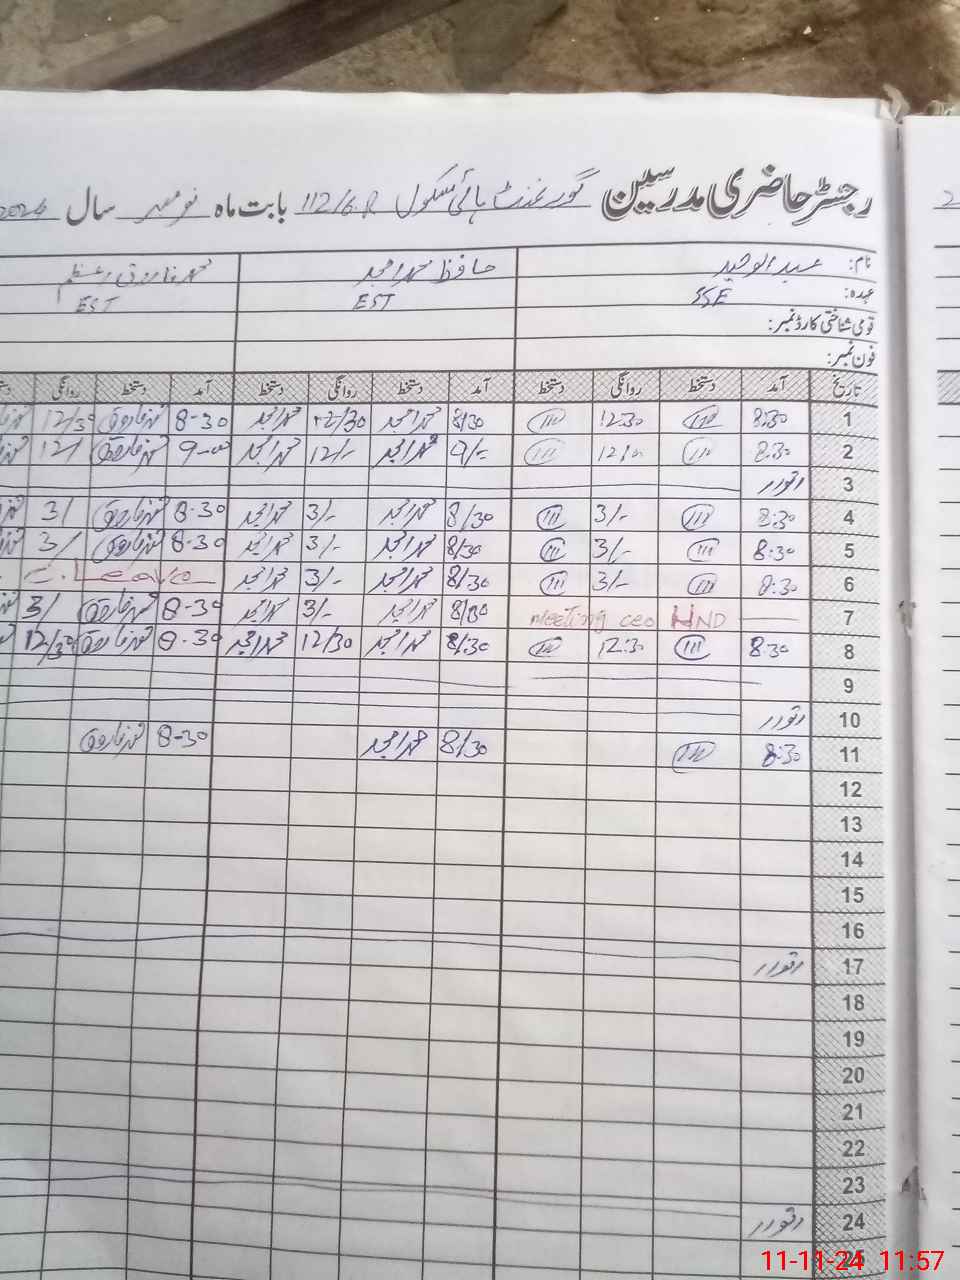 رجسٹر حاضری مدرسین گورنمنٹ ہائی سکول 112/6.R بابت ماہ نومبر سال 2024
نام: عبدالوحید حافظ محمد امجد محمد فاروق اعظم
عہدہ: SSE EST EST
قومی شناختی کارڈ نمبر:
فون نمبر:
تاریخ آمد دستخط روانگی دستخط آمد دستخط روانگی دستخط آمد دستخط روانگی
1 8:30 12:30 8/30 محمد امجد 12/30 محمد امجد 8-30 محمد فاروق 12/30
2 8:30 12/- 9/- محمد امجد 12/- محمد امجد 9-00 محمد فاروق 12/
3 اتوار
4 8:30 3/- 8/30 محمد امجد 3/- محمد امجد 8-30 محمد فاروق 3/
5 8:30 3/- 8/30 محمد امجد 3/- محمد امجد 8-30 محمد فاروق 3/
6 8:30 3/- 8/30 محمد امجد 3/- محمد امجد C. Leave
7 meeting ceo HND 8/30 محمد امجد 3/- محمد امجد 8-30 محمد فاروق 3/
8 8:30 12:30 8/30 محمد امجد 12/30 محمد امجد 8-30 محمد فاروق 12/30
9
10 اتوار
11 8:30 8/30 محمد امجد 8-30 محمد فاروق
12
13
14
15
16
17 اتوار
18
19
20
21
22
23
24 اتوار
25
11-11-24 11:57